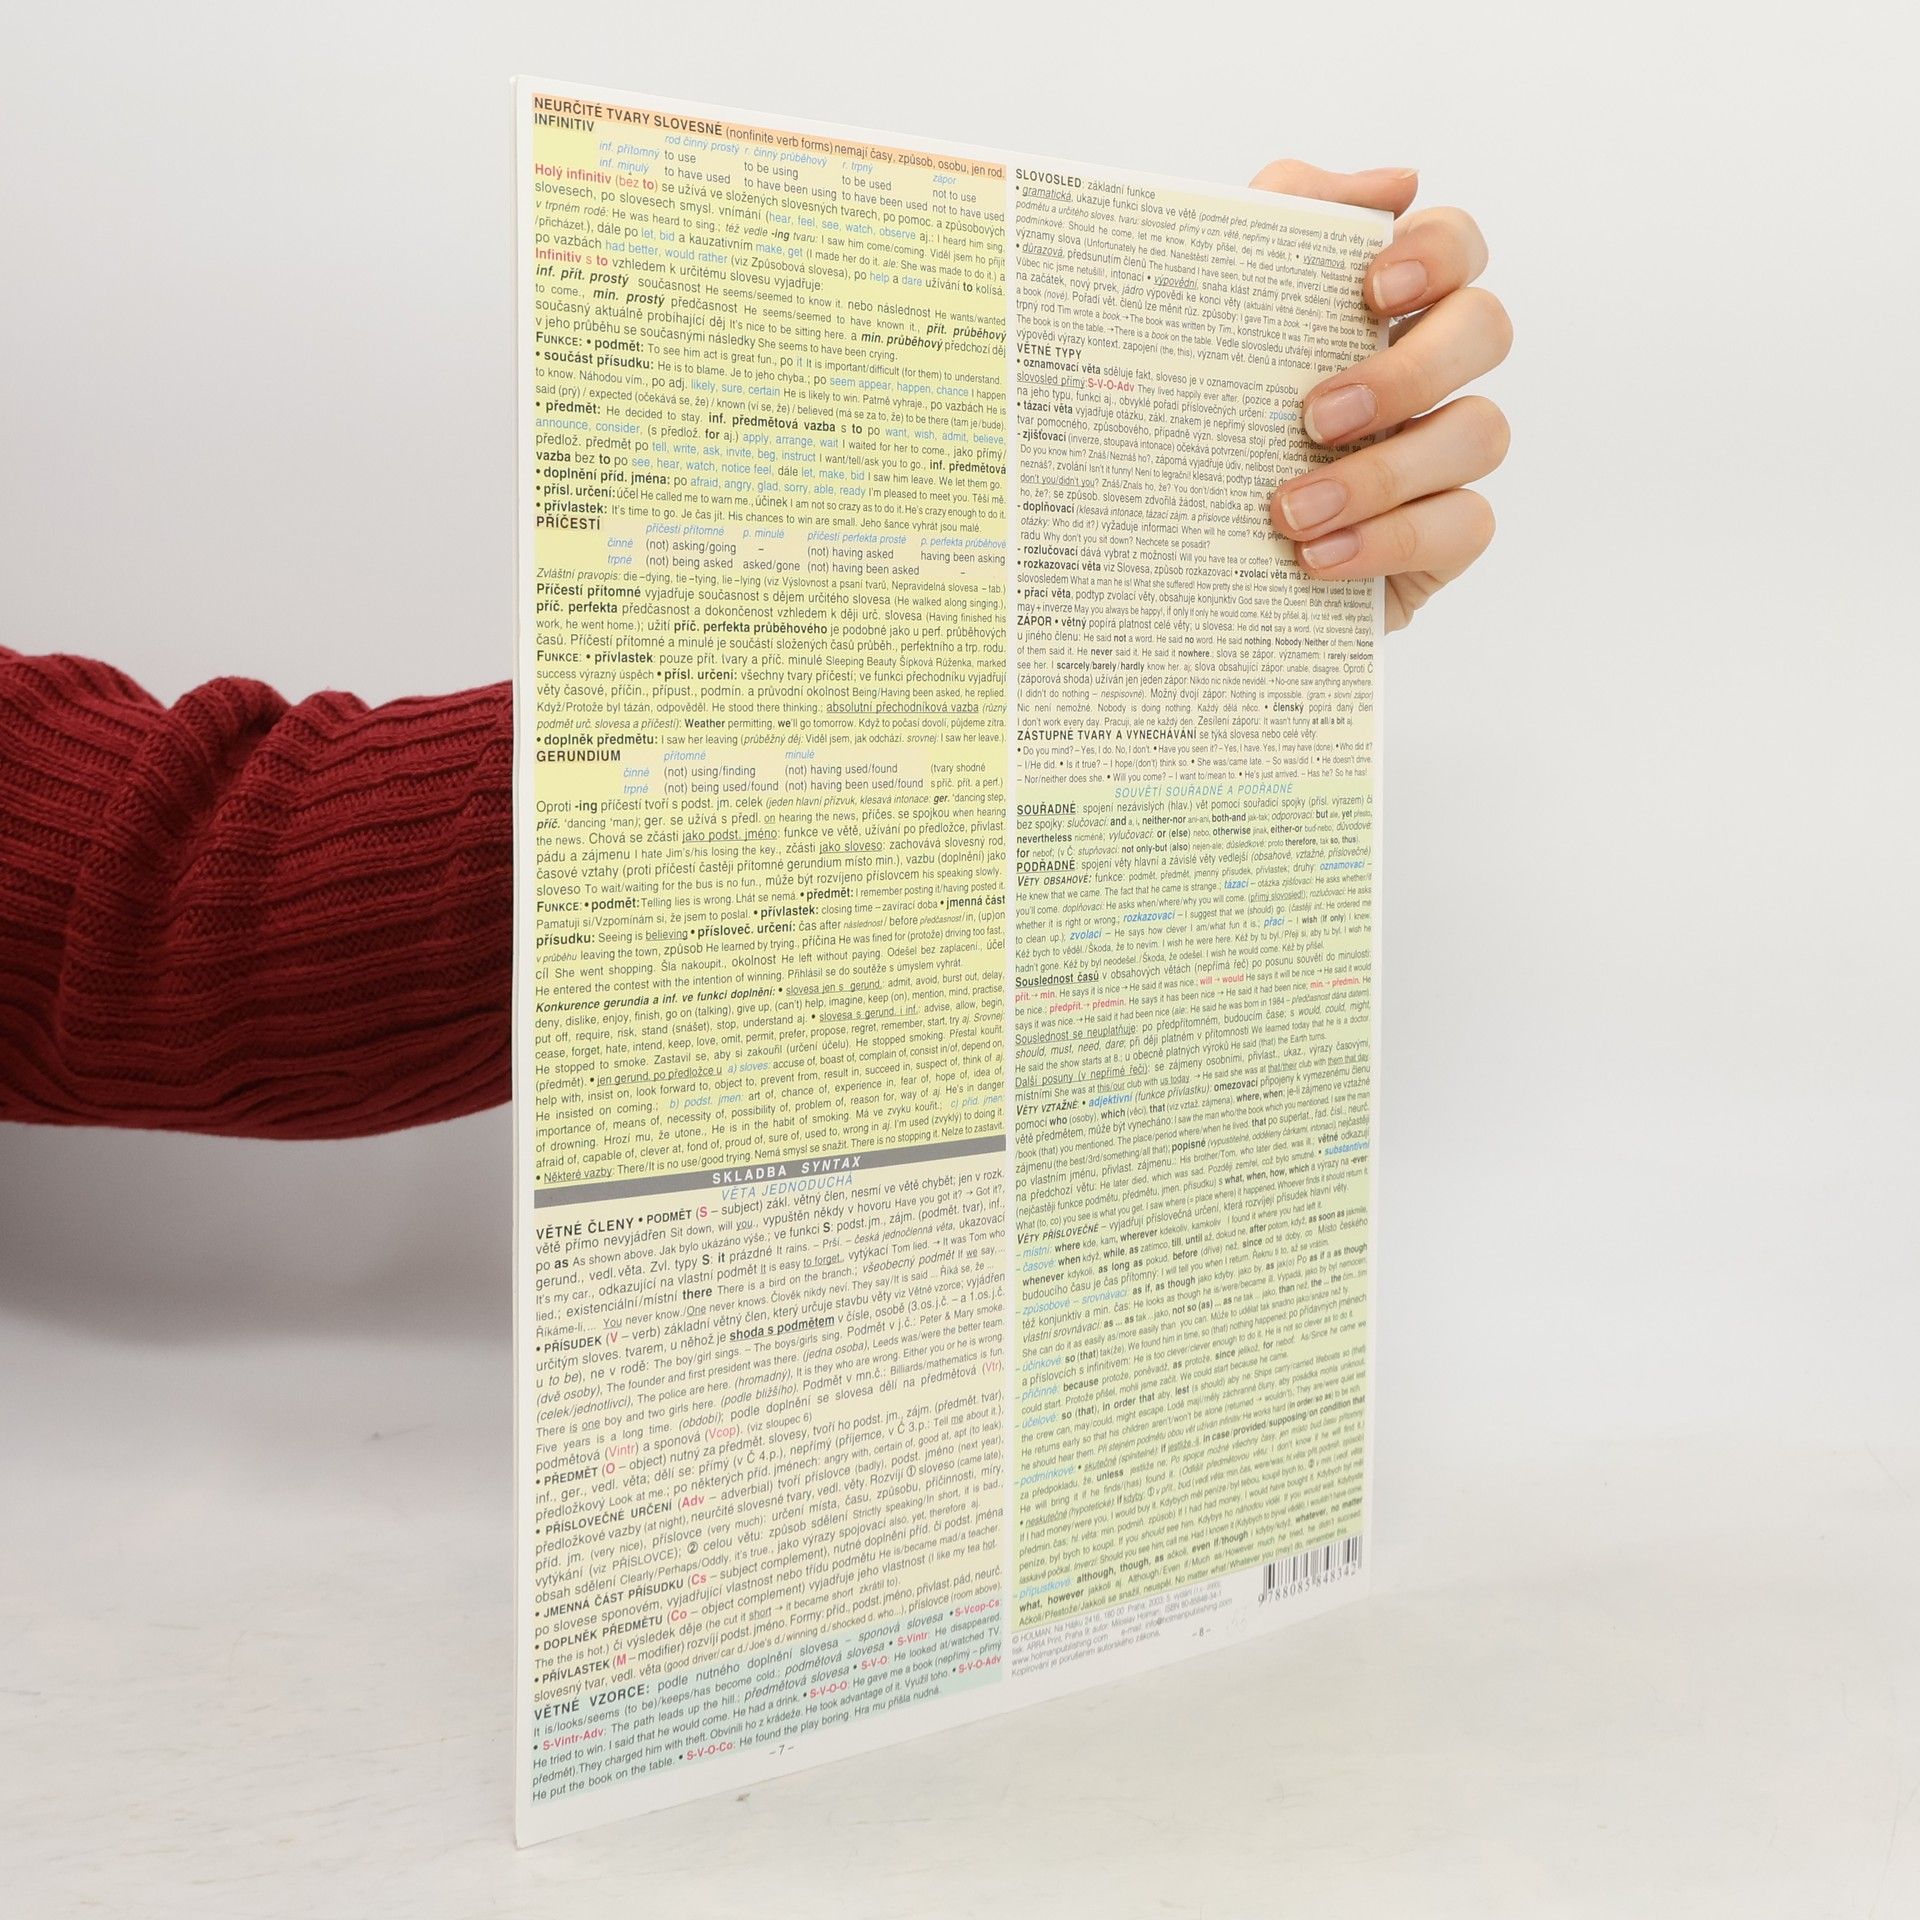 NEURČITÉ TVARY SLOVESNÉ (nonfinite verb forms) nemají časy, způsob, osobu, jen rod.
INFINITIV
rod činný prostý r. činný průběhový r. trpný zápor
inf. přítomný to use to be using to be used not to use
inf. minulý to have used to have been using to have been used not to have used
Holý infinitiv (bez to) se užívá ve složených slovesných tvarech, po pomoc. a způsobových
slovesech, po slovesech smysl. vnímání (hear, feel, see, watch, observe aj.: I heard him sing.
v trpném rodě: He was heard to sing.; též vedle -ing tvaru: I saw him come/coming. Viděl jsem ho přijít
/přicházet.), dále po let, bid a kauzativním make, get (I made her do it. ale: She was made to do it.) a
po vazbách had better, would rather (viz Způsobová slovesa), po help a dare užívání to kolísá.
Infinitiv s to vzhledem k určitému slovesu vyjadřuje:
inf. přít. prostý současnost He seems/seemed to know it. nebo následnost He wants/wanted
to come., min. prostý předčasnost He seems/seemed to have known it., přít. průběhový
současný aktuálně probíhající děj It's nice to be sitting here. a min. průběhový předchozí děj
v jeho průběhu se současnými následky She seems to have been crying.
FUNKCE: • podmět: To see him act is great fun., po it It is important/difficult (for them) to understand.
• součást přísudku: He is to blame. Je to jeho chyba.; po seem appear, happen, chance I happen
to know. Náhodou vím., po adj. likely, sure, certain He is likely to win. Patrně vyhraje., po vazbách He is
said (prý) / expected (očekává se, že) / known (ví se, že) / believed (má se za to, že) to be there (tam je/bude).
• předmět: He decided to stay. inf. předmětová vazba s to po want, wish, admit, believe,
announce, consider, (s předlož. for aj.) apply, arrange, wait I waited for her to come., jako přímý/
předlož. předmět po tell, write, ask, invite, beg, instruct I want/tell/ask you to go., inf. předmětová
vazba bez to po see, hear, watch, notice feel, dále let, make, bid I saw him leave. We let them go.
• doplnění příd. jména: po afraid, angry, glad, sorry, able, ready I'm pleased to meet you. Těší mě.
• přísl. určení: účel He called me to warn me., účinek I am not so crazy as to do it. He's crazy enough to do it.
• přívlastek: It's time to go. Je čas jít. His chances to win are small. Jeho šance vyhrát jsou malé.
PŘÍČESTÍ
příčestí přítomné p. minulé příčestí perfekta prosté p. perfekta průběhové
činné (not) asking/going – (not) having asked having been asking
trpné (not) being asked asked/gone (not) having been asked –
Zvláštní pravopis: die –dying, tie –tying, lie –lying (viz Výslovnost a psaní tvarů, Nepravidelná slovesa – tab.)
Příčestí přítomné vyjadřuje současnost s dějem určitého slovesa (He walked along singing.),
příč. perfekta předčasnost a dokončenost vzhledem k ději urč. slovesa (Having finished his
work, he went home.); užití příč. perfekta průběhového je podobné jako u perf. průběhových
časů. Příčestí přítomné a minulé je součástí složených časů průběh., perfektního a trp. rodu.
FUNKCE: • přívlastek: pouze přít. tvary a příč. minulé Sleeping Beauty Šípková Růženka, marked
success výrazný úspěch • přísl. určení: všechny tvary příčestí; ve funkci přechodníku vyjadřují
věty časové, příčin., přípust., podmín. a průvodní okolnost Being/Having been asked, he replied.
Když/Protože byl tázán, odpověděl. He stood there thinking.; absolutní přechodníková vazba (různý
podmět urč. slovesa a příčestí): Weather permitting, we'll go tomorrow. Když to počasí dovolí, půjdeme zítra.
• doplněk předmětu: I saw her leaving (průběžný děj: Viděl jsem, jak odchází. srovnej: I saw her leave.).
GERUNDIUM přítomné minulé
činné (not) using/finding (not) having used/found (tvary shodné
trpné (not) being used/found (not) having been used/found s příč. přít. a perf.)
Oproti -ing příčestí tvoří s podst. jm. celek (jeden hlavní přízvuk, klesavá intonace: ger. 'dancing step,
příč. 'dancing 'man); ger. se užívá s předl. on hearing the news, příčes. se spojkou when hearing
the news. Chová se zčásti jako podst. jméno: funkce ve větě, užívání po předložce, přivlast.
pádu a zájmenu I hate Jim's/his losing the key., zčásti jako sloveso: zachovává slovesný rod,
časové vztahy (proti příčestí častěji přítomné gerundium místo min.), vazbu (doplnění) jako
sloveso To wait/waiting for the bus is no fun., může být rozvíjeno příslovcem his speaking slowly.
FUNKCE: • podmět: Telling lies is wrong. Lhát se nemá. • předmět: I remember posting it/having posted it.
Pamatuji si/Vzpomínám si, že jsem to poslal. • přívlastek: closing time – zavírací doba • jmenná část
přísudku: Seeing is believing • přísloveč. určení: čas after následnost / before předčasnost / in, (up)on
v průběhu leaving the town, způsob He learned by trying., příčina He was fined for (protože) driving too fast.,
cíl She went shopping. Šla nakoupit., okolnost He left without paying. Odešel bez zaplacení., účel
He entered the contest with the intention of winning. Přihlásil se do soutěže s úmyslem vyhrát.
Konkurence gerundia a inf. ve funkci doplnění: • slovesa jen s gerund.: admit, avoid, burst out, delay,
deny, dislike, enjoy, finish, go on (talking), give up, (can't) help, imagine, keep (on), mention, mind, practise,
put off, require, risk, stand (snášet), stop, understand aj. • slovesa s gerund. i inf.: advise, allow, begin,
cease, forget, hate, intend, keep, love, omit, permit, prefer, propose, regret, remember, start, try aj. Srovnej:
He stopped to smoke. Zastavil se, aby si zakouřil (určení účelu). He stopped smoking. Přestal kouřit.
(předmět). • jen gerund. po předložce u a) sloves: accuse of, boast of, complain of, consist in/of, depend on,
help with, insist on, look forward to, object to, prevent from, result in, succeed in, suspect of, think of aj.
He insisted on coming.; b) podst. jmen: art of, chance of, experience in, fear of, hope of, idea of,
importance of, means of, necessity of, possibility of, problem of, reason for, way of aj. He's in danger
of drowning. Hrozí mu, že utone., He is in the habit of smoking. Má ve zvyku kouřit.; c) příd. jmen:
afraid of, capable of, clever at, fond of, proud of, sure of, used to, wrong in aj. I'm used (zvyklý) to doing it.
• Některé vazby: There/It is no use/good trying. Nemá smysl se snažit. There is no stopping it. Nelze to zastavit.
SKLADBA SYNTAX
VĚTA JEDNODUCHÁ
VĚTNÉ ČLENY • PODMĚT (S – subject) zákl. větný člen, nesmí ve větě chybět; jen v rozk.
větě přímo nevyjádřen Sit down, will you., vypuštěn někdy v hovoru Have you got it? → Got it?,
po as As shown above. Jak bylo ukázáno výše.; ve funkci S: podst. jm., zájm. (podmět. tvar), inf.,
gerund., vedl. věta. Zvl. typy S: it prázdné It rains. – Prší. – česká jednočlenná věta, ukazovací
It's my car., odkazující na vlastní podmět It is easy to forget., vytýkací Tom lied. → It was Tom who
lied.; existenciální/místní there There is a bird on the branch.; všeobecný podmět If we say,...
Říkáme-li,... You never know./One never knows. Člověk nikdy neví. They say/It is said ... Říká se, že ...
• PŘÍSUDEK (V – verb) základní větný člen, který určuje stavbu věty viz Větné vzorce; vyjádřen
určitým sloves. tvarem, u něhož je shoda s podmětem v čísle, osobě (3.os.j.č. – a 1.os.j.č.
u to be), ne v rodě: The boy/girl sings. – The boys/girls sing. Podmět v j.č.: Peter & Mary smoke.
(dvě osoby), The founder and first president was there. (jedna osoba), Leeds was/were the better team.
(celek/jednotlivci), The police are here. (hromadný), It is they who are wrong. Either you or he is wrong.
There is one boy and two girls here. (podle bližšího). Podmět v mn.č.: Billiards/mathematics is fun.
Five years is a long time. (období); podle doplnění se slovesa dělí na předmětová (Vtr),
podmětová (Vintr) a sponová (Vcop). (viz sloupec 6)
• PŘEDMĚT (O – object) nutný za předmět. slovesy, tvoří ho podst. jm., zájm. (předmět. tvar),
inf., ger., vedl. věta; dělí se: přímý (v Č 4.p.), nepřímý (příjemce, v Č 3.p.: Tell me about it.),
předložkový Look at me.; po některých příd. jménech: angry with, certain of, good at, apt (to leak).
• PŘÍSLOVEČNÉ URČENÍ (Adv – adverbial) tvoří příslovce (badly), podst. jméno (next year),
předložkové vazby (at night), neurčité slovesné tvary, vedl. věty. Rozvíjí ① sloveso (came late),
příd. jm. (very nice), příslovce (very much): určení místa, času, způsobu, příčinnosti, míry,
vytýkání (viz PŘÍSLOVCE); ② celou větu: způsob sdělení Strictly speaking/In short, it is bad.,
obsah sdělení Clearly/Perhaps/Oddly, it's true., jako výrazy spojovací also, yet, therefore aj.
• JMENNÁ ČÁST PŘÍSUDKU (Cs – subject complement), nutné doplnění příd. či podst. jména
po slovese sponovém, vyjadřující vlastnost nebo třídu podmětu He is/became mad/a teacher.
• DOPLNĚK PŘEDMĚTU (Co – object complement) vyjadřuje jeho vlastnost (I like my tea hot.
The the is hot.) či výsledek děje (he cut it short → it became short zkrátil to).
• PŘÍVLASTEK (M – modifier) rozvíjí podst. jméno. Formy: příd., podst. jméno, přivlast. pád, neurč.
slovesný tvar, vedl. věta (good driver/car d./Joe's d./winning d./shocked d. who...), příslovce (room above).
VĚTNÉ VZORCE: podle nutného doplnění slovesa – sponová slovesa • S-Vcop-Cs:
It is/looks/seems (to be)/keeps/has become cold.; podmětová slovesa • S-Vintr: He disappeared.
• S-Vintr-Adv: The path leads up the hill.; předmětová slovesa • S-V-O: He looked at/watched TV.
He tried to win. I said that he would come. He had a drink. • S-V-O-O: He gave me a book (nepřímý – přímý
předmět). They charged him with theft. Obvinili ho z krádeže. He took advantage of it. Využil toho. • S-V-O-Adv
He put the book on the table. • S-V-O-Co: He found the play boring. Hra mu přišla nudná.
– 7 –
SLOVOSLED: základní funkce
• gramatická, ukazuje funkci slova ve větě (podmět před, předmět za slovesem) a druh věty (sled
podmětu a určitého sloves. tvaru: slovosled přímý v ozn. větě, nepřímý v tázací větě viz níže, ve větě
podmínkové: Should he come, let me know. Kdyby přišel, dej mi vědět.); • významová,
významy slova (Unfortunately he died. Naneštěstí zemřel. – He died unfortunately. Nešťastně
• důrazová, předsunutím členů The husband I have seen, but not the wife, inverzí Little did we
Vůbec nic jsme netušili!, intonací • výpovědní, snaha klást známý prvek sdělení
na začátek, nový prvek, jádro výpovědi ke konci věty (aktuální větné členění): Tim (známé) has
a book (nové). Pořadí vět. členů lze měnit růz. způsoby: I gave Tim a book. → I gave the book to Tim,
trpný rod Tim wrote a book. → The book was written by Tim., konstrukce It was Tim who wrote the book.
The book is on the table. → There is a book on the table. Vedle slovosledu utvářejí informační
výpovědi výrazy kontext. zapojení (the, this), význam vět. členů a intonace: I gave
VĚTNÉ TYPY
• oznamovací věta sděluje fakt, sloveso je v oznamovacím způsobu
slovosled přímý: S-V-O-Adv They lived happily ever after. (pozice a pořad
na jeho typu, funkci aj., obvyklé pořadí příslovečných určení: způsob –
• tázací věta vyjadřuje otázku, zákl. znakem je nepřímý slovosled
tvar pomocného, způsobového, případně význ. slovesa stojí před
- zjišťovací (inverze, stoupavá intonace) očekává potvrzení/popření, kladná otázka
Do you know him? Znáš/Neznáš ho?, záporná vyjadřuje údiv, nelibost Don't you
neznáš?, zvolání Isn't it funny! Není to legrační! klesavá; podtyp tázací
don't you/didn't you? Znáš/Znals ho, že? You don't/didn't know him,
ho, že?; se způsob. slovesem zdvořilá žádost, nabídka ap.
- doplňovací (klesavá intonace, tázací zájm. a příslovce většinou na
otázky: Who did it?) vyžaduje informaci When will he come? Kdy
radu Why don't you sit down? Nechcete se posadit?
- rozlučovací dává vybrat z možností Will you have tea or coffee?
• rozkazovací věta viz Slovesa, způsob rozkazovací • zvolací věta má
slovosledem What a man he is! What she suffered! How pretty she is! How slowly it goes! How I used to love it!
• přací věta, podtyp zvolací věty, obsahuje konjunktiv God save the Queen! Bůh chraň královnu!,
may + inverze May you always be happy!, if only If only he would come. Kéž by přišel. aj. (viz též vedl. věty přací).
ZÁPOR • větný popírá platnost celé věty; u slovesa: He did not say a word. (viz slovesné časy),
u jiného členu: He said not a word. He said no word. He said nothing. Nobody/Neither of them/None
of them said it. He never said it. He said it nowhere., slova se zápor. významem: I rarely/seldom
see her. I scarcely/barely/hardly know her. aj, slova obsahující zápor: unable, disagree. Oproti Č
(záporová shoda) užíván jen jeden zápor: Nikdo nic nikde neviděl. → No-one saw anything anywhere.
(I didn't do nothing – nespisovné). Možný dvojí zápor: Nothing is impossible. (gram. + slovní zápor)
Nic není nemožné. Nobody is doing nothing. Každý dělá něco. • členský popírá daný člen
I don't work every day. Pracuji, ale ne každý den. Zesílení záporu: It wasn't funny at all/a bit aj.
ZÁSTUPNÉ TVARY A VYNECHÁVÁNÍ se týká slovesa nebo celé věty:
• Do you mind? – Yes, I do. No, I don't. • Have you seen it? – Yes, I have. Yes, I may have (done). • Who did it?
– I/He did. • Is it true? – I hope/(don't) think so. • She was/came late. – So was/did I. • He doesn't drive.
– Nor/neither does she. • Will you come? – I want to/mean to. • He's just arrived. – Has he? So he has!
SOUVĚTÍ SOUŘADNÉ A PODŘADNÉ
SOUŘADNÉ: spojení nezávislých (hlav.) vět pomocí souřadicí spojky (přísl. výrazem) či
bez spojky: slučovací: and a, i, neither-nor ani-ani, both-and jak-tak; odporovací: but ale, yet přesto,
nevertheless nicméně; vylučovací: or (else) nebo, otherwise jinak, either-or bud-nebo, důvodové:
for neboť; (v Č: stupňovací: not only-but (also) nejen-ale; důsledkové: proto therefore, tak so, thus).
PODŘADNÉ: spojení věty hlavní a závislé věty vedlejší (obsahové, vztažné, příslovečné)
VĚTY OBSAHOVÉ: funkce: podmět, předmět, jmenný přísudek, přívlastek; druhy: oznamovací –
He knew that we came. The fact that he came is strange.; tázací – otázka zjišťovací: He asks whether/if
you'll come. doplňovací: He asks when/where/why you will come. (přímý slovosled!); rozlučovací: He asks
whether it is right or wrong.; rozkazovací – I suggest that we (should) go. (častěji inf.: He ordered me
to clean up.), zvolací – He says how clever I am/what fun it is.; přací – I wish (If only) I knew.
Kéž bych to věděl./Škoda, že to nevím. I wish he were here. Kéž by tu byl./Přeji si, aby tu byl. I wish he
hadn't gone. Kéž by byl neodešel./Škoda, že odešel. I wish he would come. Kéž by přišel.
Souslednost časů v obsahových větách (nepřímá řeč) po posunu souvětí do minulosti:
přít. → min. He says it is nice → He said it was nice.; will → would He says it will be nice → He said it would
be nice.; předpřít. → předmin. He says it has been nice → He said it had been nice; min. → předmin. He
says it was nice. → He said it had been nice (ale: He said he was born in 1984 – předčasnost dána datem).
Souslednost se neuplatňuje: po předpřítomném, budoucím čase; s would, could, might,
should, must, need, dare; při ději platném v přítomnosti We learned today that he is a doctor.
He said the show starts at 8.; u obecně platných výroků He said (that) the Earth turns.
Další posuny (v nepřímé řeči): se zájmeny osobními, přivlast., ukaz., výrazy časovými,
místními She was at this/our club with us today → He said she was at that/their club with them that day.
VĚTY VZTAŽNÉ • adjektivní (funkce přívlastku): omezovací připojený k vymezenému členu
pomocí who (osoby), which (věci), that (viz vztaž. zájmena), where, when; je-li zájmeno ve vztažné
větě předmětem, může být vynecháno: I saw the man who/the book which you mentioned. I saw the man
/book (that) you mentioned. The place/period where/when he lived. that po superlat., řad. čísl., neurč.
zájmenu (the best/3rd/something/all that); popisné (vypustitelné, odděleny čárkami, intonací), nejčastěji
po vlastním jménu, přivlast. zájmenu.: His brother/Tom, who later died, was ill.; větné odkazují
na předchozí větu: He later died, which was sad. Později zemřel, což bylo smutné. • substantivní
(nejčastěji funkce podmětu, předmětu, jmen. přísudku) s what, when, how, which a výrazy na -ever:
What (to, co) you see is what you get. I saw where (= place where) it happened. Whoever finds it should return it.
VĚTY PŘÍSLOVEČNÉ – vyjadřují příslovečná určení, která rozvíjejí přísudek hlavní věty.
– místní: where kde, kam, wherever kdekoliv, kamkoliv I found it where you had left it.
– časové: when když, while, as zatímco, till, until až, dokud ne, after potom, když, as soon as jakmile,
whenever kdykoli, as long as pokud, before (dříve) než, since od té doby, co Místo českého
budoucího času je čas přítomný: I will tell you when I return. Řeknu ti to, až se vrátím.
– způsobové – srovnávací: as if, as though jako kdyby, jako by, as jak(o) Po as if a as though
též konjunktiv a min. čas: He looks as though he is/were/became ill. Vypadá, jako by byl nemocen;
vlastní srovnávací: as ... as tak ... jako, not so (as) ... as ne tak ... jako, than než, the ... the čím...tím
She can do it as easily as/more easily than you can. Může to udělat tak snadno jako/snáze než ty.
– účinkové: so (that) tak(že): We found him in time, so (that) nothing happened; po přídavných jménech
a příslovcích s infinitivem: He is too clever/clever enough to do it. He is not so clever as to do it.
– příčinné: because protože, poněvadž, as protože, since jelikož, for neboť: As/Since he came we
could start. Protože přišel, mohli jsme začít. We could start because he came.
– účelové: so (that), in order that aby, lest (s should) aby ne: Ships carry/carried lifeboats so (that)
the crew can, may/could, might escape. Lodě mají/měly záchranné čluny, aby posádka mohla uniknout.
He returns early so that his children aren't/won't be alone (returned → wouldn't). They are/were quiet lest
he should hear them.
– podmínkové: • skutečné (splnitelné): if jestliže, -li, in case/provided/supposing/on condition that
za předpokladu, že, unless jestliže ne.
He will bring it if he finds/(has) found it.
• neskutečné (hypotetické): if kdyby:
If I had money/were you, I would buy it.
– přípustkové: although, though, as ačkoli, even if/though i kdyby/když, whatever, no matter
what, however jakkoli aj. Although/Even if/Much as/However much he tried, he didn't succeed.
Ačkoli/Přestože/Jakkoli se snažil, neuspěl. No matter what/Whatever you (may) do, remember this.
© HOLMAN, Na Hájku 2416, 180 00 Praha, 2003; 5. vydání
tisk: ARRA Print, Praha 9; autor: Miloslav Holman ISBN 80-85848-34-1
www.holmanpublishing.com e-mail: info@holmanpublishing.com
Kopírování je porušením autorského zákona.
– 8 –
9788085848342